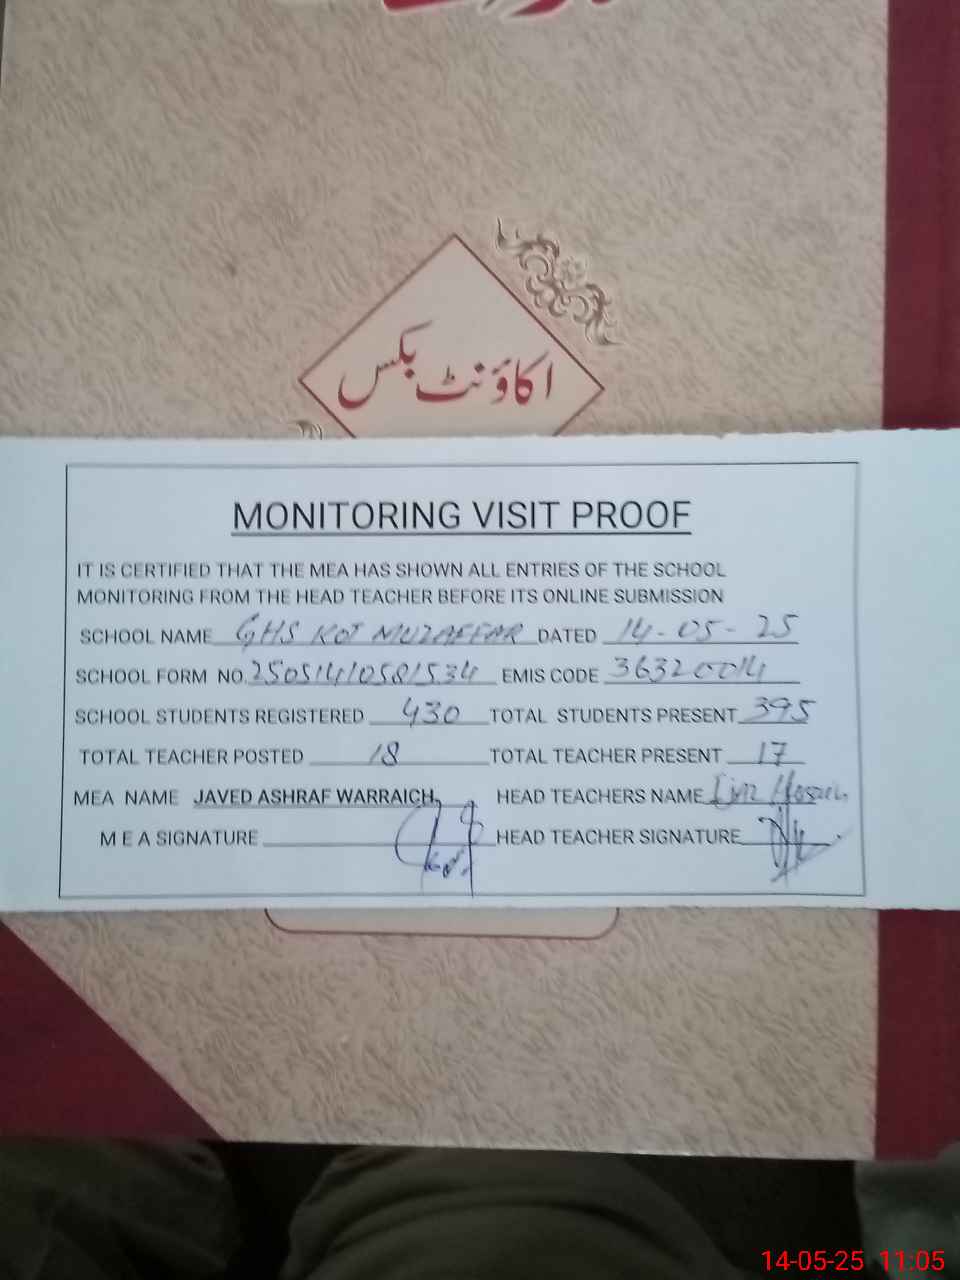 اکاؤنٹ بکس
MONITORING VISIT PROOF
IT IS CERTIFIED THAT THE MEA HAS SHOWN ALL ENTRIES OF THE SCHOOL
MONITORING FROM THE HEAD TEACHER BEFORE ITS ONLINE SUBMISSION
SCHOOL NAME GHS KOT MUZAFFAR DATED 14-05-25
SCHOOL FORM NO. 25051410581534 EMIS CODE 36320014
SCHOOL STUDENTS REGISTERED 430 TOTAL STUDENTS PRESENT 395
TOTAL TEACHER POSTED 18 TOTAL TEACHER PRESENT 17
MEA NAME JAVED ASHRAF WARRAICH HEAD TEACHERS NAME
M E A SIGNATURE HEAD TEACHER SIGNATURE
14-05-25 11:05